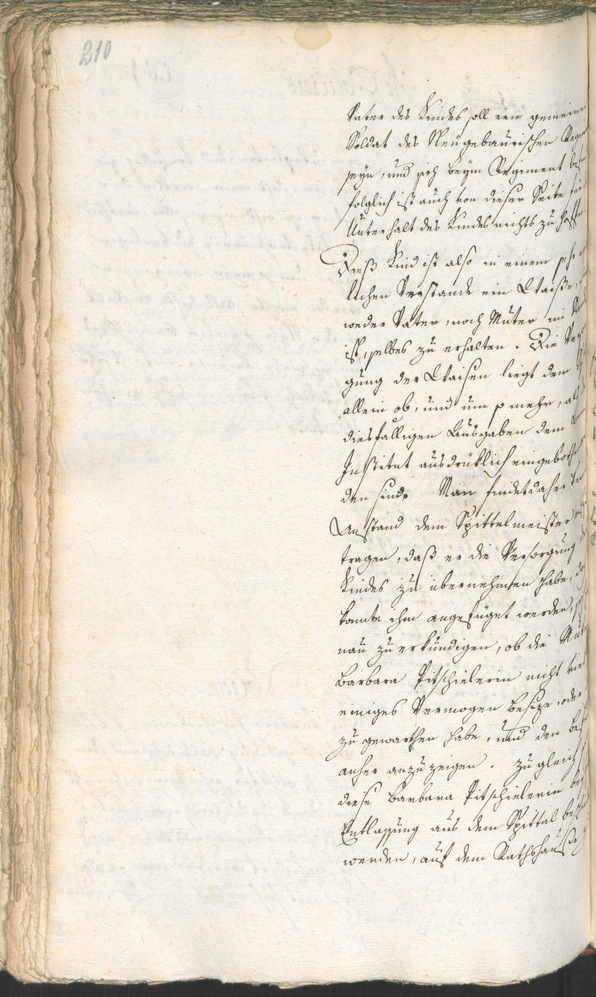 210
Vater des Kindes soll ein gemeiner
Soldat des Neugebaurischen
seyn, und sich beym Regiment
folglich ist auch von dieser Seite für
Unterhalt des Kindes nichts zu
Dieß Kind ist also in einem
lichen Verstande ein Waise,
weder Vater, noch Muter im
ist, selbes zu erhalten. Die
gung der Waisen liegt dem
allein ob, und um so mehr, als
diesfälligen Ausgaben dem
Institut ausdrüklich
den sind. Man findet daher
Anstand dem Spittelmeister
tragen, daß er die Versorgung
Kindes zu übernehmen habe,
könnte ihm angefüget werden,
nau zu erkundigen, ob die
Barbara Pitschielerin nicht
einiges Vermögen besize, oder
zu gewarthen habe, und den
anher anzuzeigen. Zugleich
diese Barbara Pitschielerin
Entlassung aus dem Spittal
werden, auf dem Rathshause